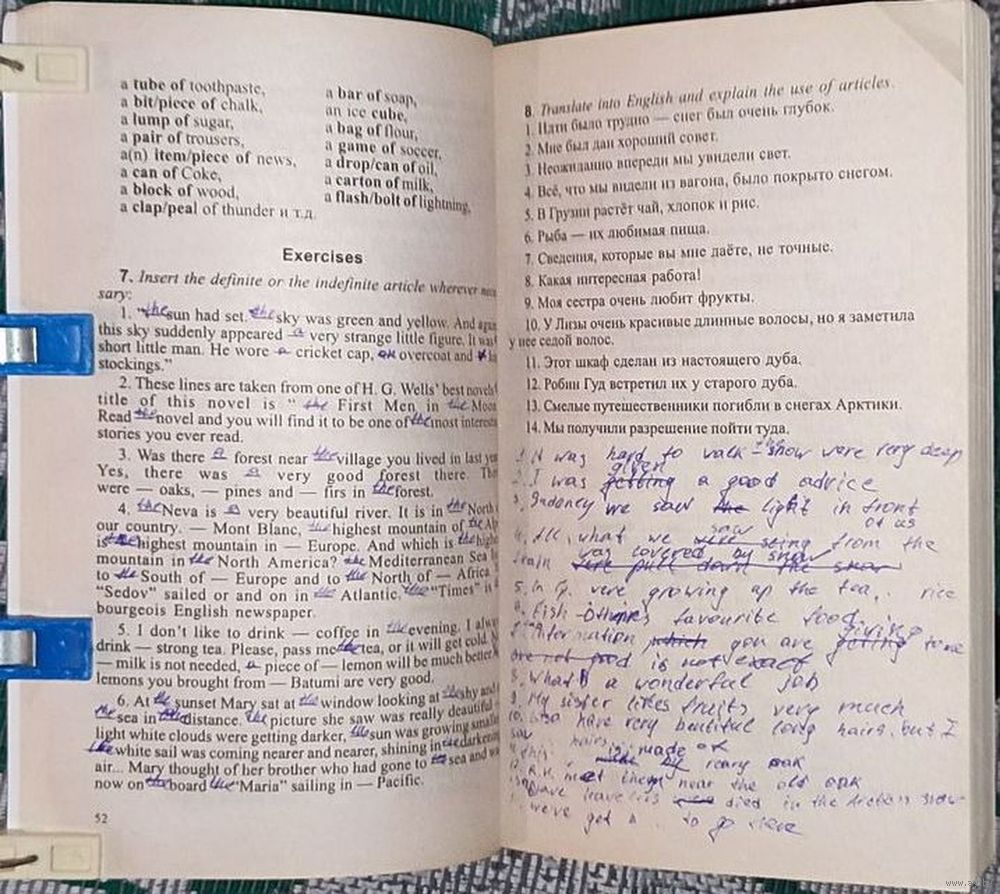 a tube of toothpaste,
a bit/piece of chalk,
a lump of sugar,
a pair of trousers,
a(n) item/piece of news,
a can of Coke,
a block of wood,
a clap/peal of thunder и т.д.
a bar of soap,
an ice cube,
a bag of flour,
a game of soccer,
a drop/can of oil,
a carton of milk,
a flash/bolt of lightning,
Exercises
7. Insert the definite or the indefinite article wherever
sary:
1. "the sun had set. the sky was green and yellow. And again
this sky suddenly appeared a very strange little figure. It was
short little man. He wore a cricket cap, an overcoat and
stockings."
2. These lines are taken from one of H. G. Wells' best novels
title of this novel is " the First Men in the Moon
Read the novel and you will find it to be one of the most
stories you ever read.
3. Was there a forest near the village you lived in last
Yes, there was a very good forest there.
were — oaks, — pines and — firs in the forest.
4. the Neva is a very beautiful river. It is in the North
our country. — Mont Blanc, the highest mountain of the
is the highest mountain in — Europe. And which is the
mountain in the North America? the Mediterranean Sea
to the South of — Europe and to the North of — Africa
"Sedov" sailed or and on in the Atlantic. the "Times" is
bourgeois English newspaper.
5. I don't like to drink — coffee in the evening. I
drink — strong tea. Please, pass me the tea, or it will get cold.
— milk is not needed, a piece of — lemon will be much better.
lemons you brought from — Batumi are very good.
6. At the sunset Mary sat at the window looking at the shy and
the sea in the distance. the picture she saw was really beautiful
light white clouds were getting darker, the sun was growing
the white sail was coming nearer and nearer, shining in the
air... Mary thought of her brother who had gone to the sea and
now on the board the "Maria" sailing in — Pacific.
52
8. Translate into English and explain the use of articles.
1. Идти было трудно — снег был очень глубок.
2. Мне был дан хороший совет.
3. Неожиданно впереди мы увидели свет.
4. Всё, что мы видели из вагона, было покрыто снегом.
5. В Грузии растёт чай, хлопок и рис.
6. Рыба — их любимая пища.
7. Сведения, которые вы мне даёте, не точные.
8. Какая интересная работа!
9. Моя сестра очень любит фрукты.
10. У Лизы очень красивые длинные волосы, но я заметила
у нее седой волос.
11. Этот шкаф сделан из настоящего дуба.
12. Робин Гуд встретил их у старого дуба.
13. Смелые путешественники погибли в снегах Арктики.
14. Мы получили разрешение пойти туда.
1. It was hard to walk - the snow were very deep
given
2. I was getting a good advice
3. we saw the light in front
of us
saw
4. All, what we were seing from the
was covered by snow
train
5. In G. were growing up the tea, rice
6. Fish - favourite food
giving
7. Information which you are geting to me
are not good is not exact
8. What a wonderful job
9. My sister likes fruits very much
10. Lisa have very beutiful long hairs, but I
saw hairs
11. is made of oak
12. R.H. met them near the old oak
13. died in the snow
14. We've get to go